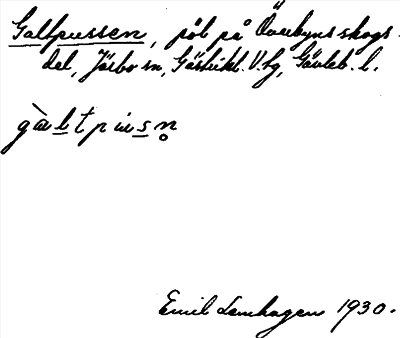 Galtpussen, pöl på Överbyns skogs-
del, Järbo sn, Gästrikl. V. tg, Gävleb. l.
gàltpusn̥
Emil Lenhagen 1930.